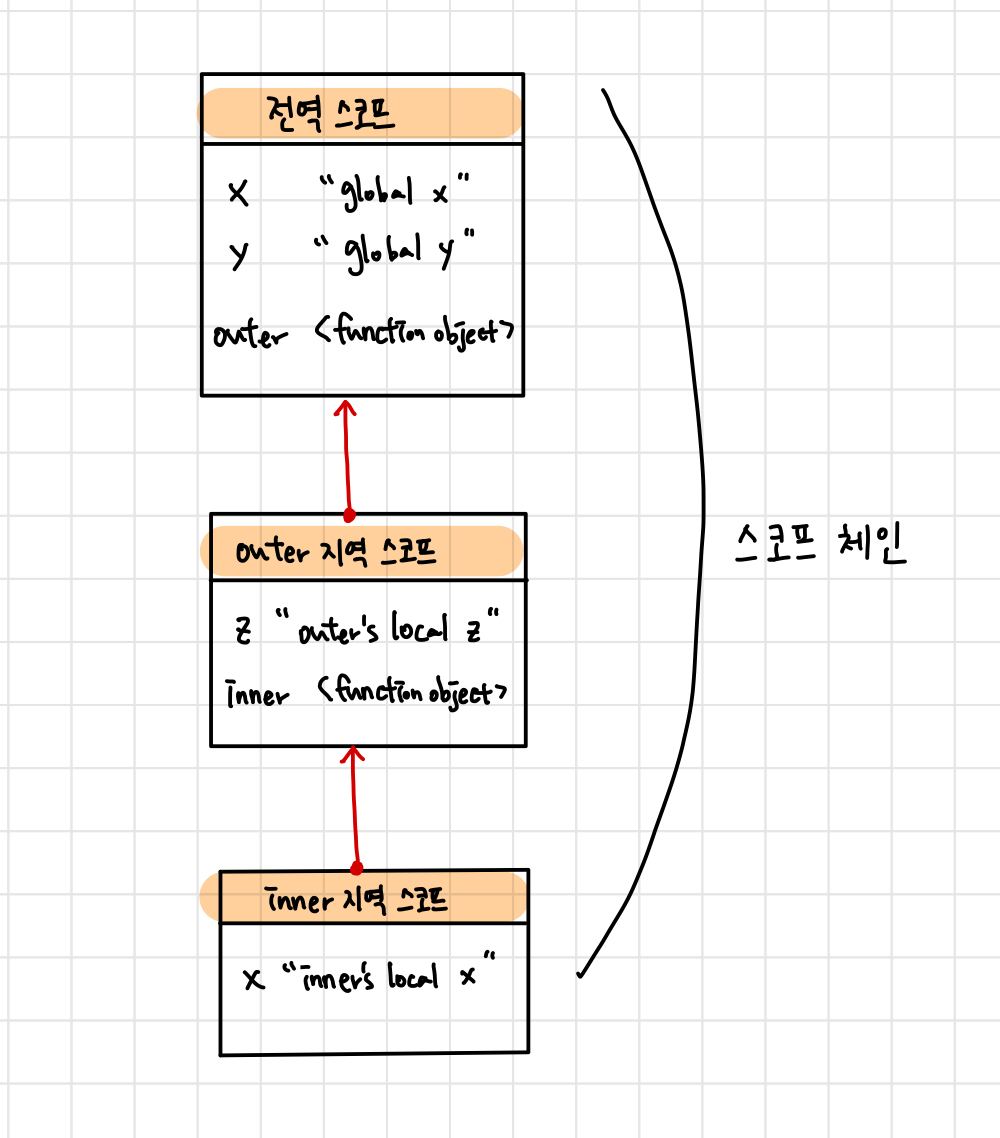 전역 스코프
x "global x"
y "global y"
outer <function object>
outer 지역 스코프
z "outer's local z"
inner <function object>
스코프 체인
inner 지역 스코프
x "inner's local x"